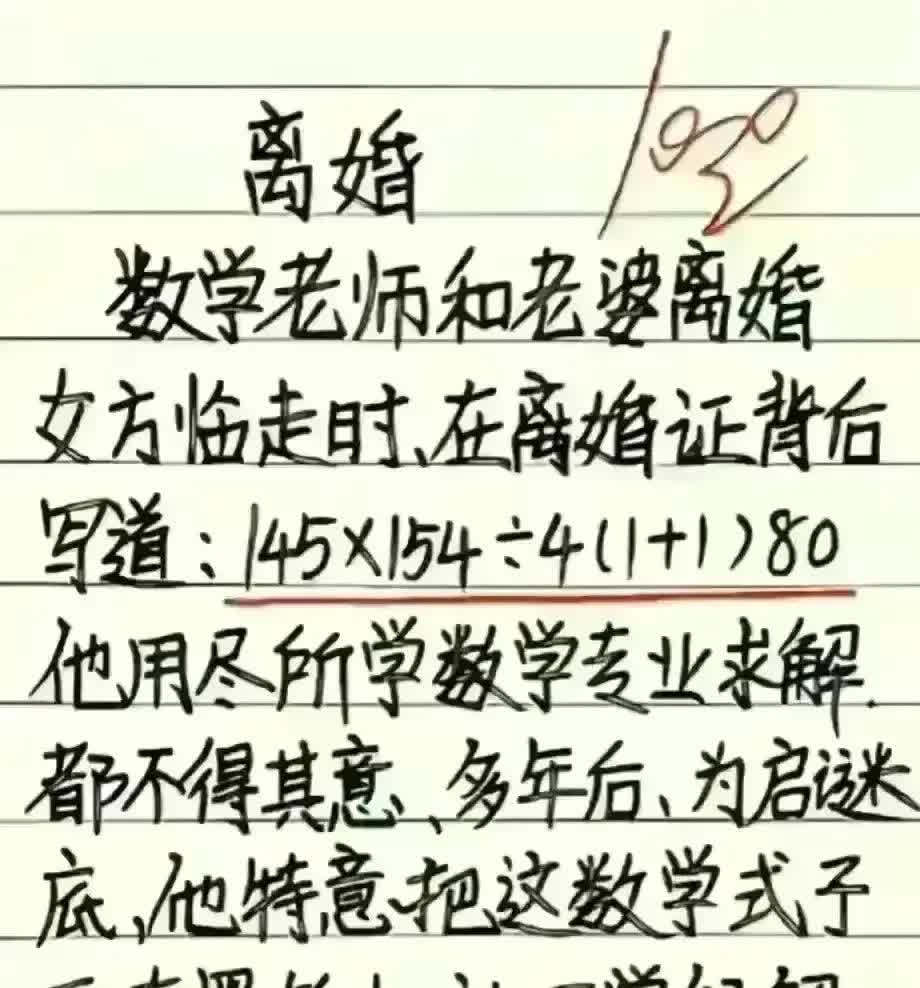 离婚
100
数学老师和老婆离婚
女方临走时、在离婚证背后
写道：145×154÷4(1+1)80
他用尽所学数学专业求解.
都不得其意、多年后、为启谜
底,他特意把这数学式子